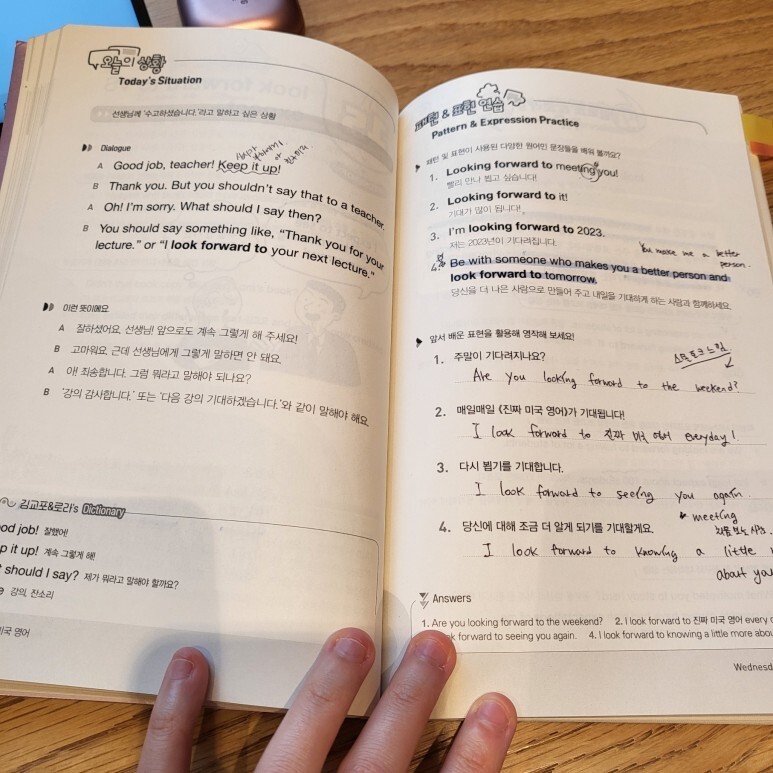 오늘의 상황
Today's Situation
선생님께 '수고하셨습니다.'라고 말하고 싶은 상황
Dialogue
A Good job, teacher! Keep it up!
B Thank you. But you shouldn't say that to a teacher.
A Oh! I'm sorry. What should I say then?
B You should say something like, "Thank you for your
lecture." or "I look forward to your next lecture."
이런 뜻이에요.
A 잘하셨어요, 선생님! 앞으로도 계속 그렇게 해 주세요!
B 고마워요. 근데 선생님에게 그렇게 말하면 안 돼요.
A 아! 죄송합니다. 그럼 뭐라고 말해야 되나요?
B '강의 감사합니다.' 또는 '다음 강의 기대하겠습니다.'와 같이 말해야 해요.
김교포&로라's Dictionary
od job! 잘했어!
p it up! 계속 그렇게 해!
should I say? 제가 뭐라고 말해야 할까요?
e 강의, 잔소리
미국 영어
패턴 & 표현 연습
Pattern & Expression Practice
패턴 및 표현이 사용된 다양한 원어민 문장들을 배워 볼까요?
1. Looking forward to meeting you!
빨리 만나 뵙고 싶습니다!
2. Looking forward to it!
기대가 많이 됩니다!
3. I'm looking forward to 2023.
저는 2023년이 기다려집니다.
You make me a better
person.
4. Be with someone who makes you a better person and
look forward to tomorrow.
당신을 더 나은 사람으로 만들어 주고 내일을 기대하게 하는 사람과 함께하세요.
앞서 배운 표현을 활용해 영작해 보세요!
1. 주말이 기다려지나요?
스몰토크 느낌
Are you looking forward to the weekend?
2. 매일매일 《진짜 미국 영어》가 기대됩니다!
I look forward to 진짜 미국 영어 everyday!
3. 다시 뵙기를 기대합니다.
I look forward to seeing you again.
meeting
처음 보는 사람.
4. 당신에 대해 조금 더 알게 되기를 기대할게요.
I look forward to knowing a little
about you
Answers
1. Are you looking forward to the weekend? 2. I look forward to 진짜 미국 영어 every
ok forward to seeing you again. 4. I look forward to knowing a little more abou
Wednesd